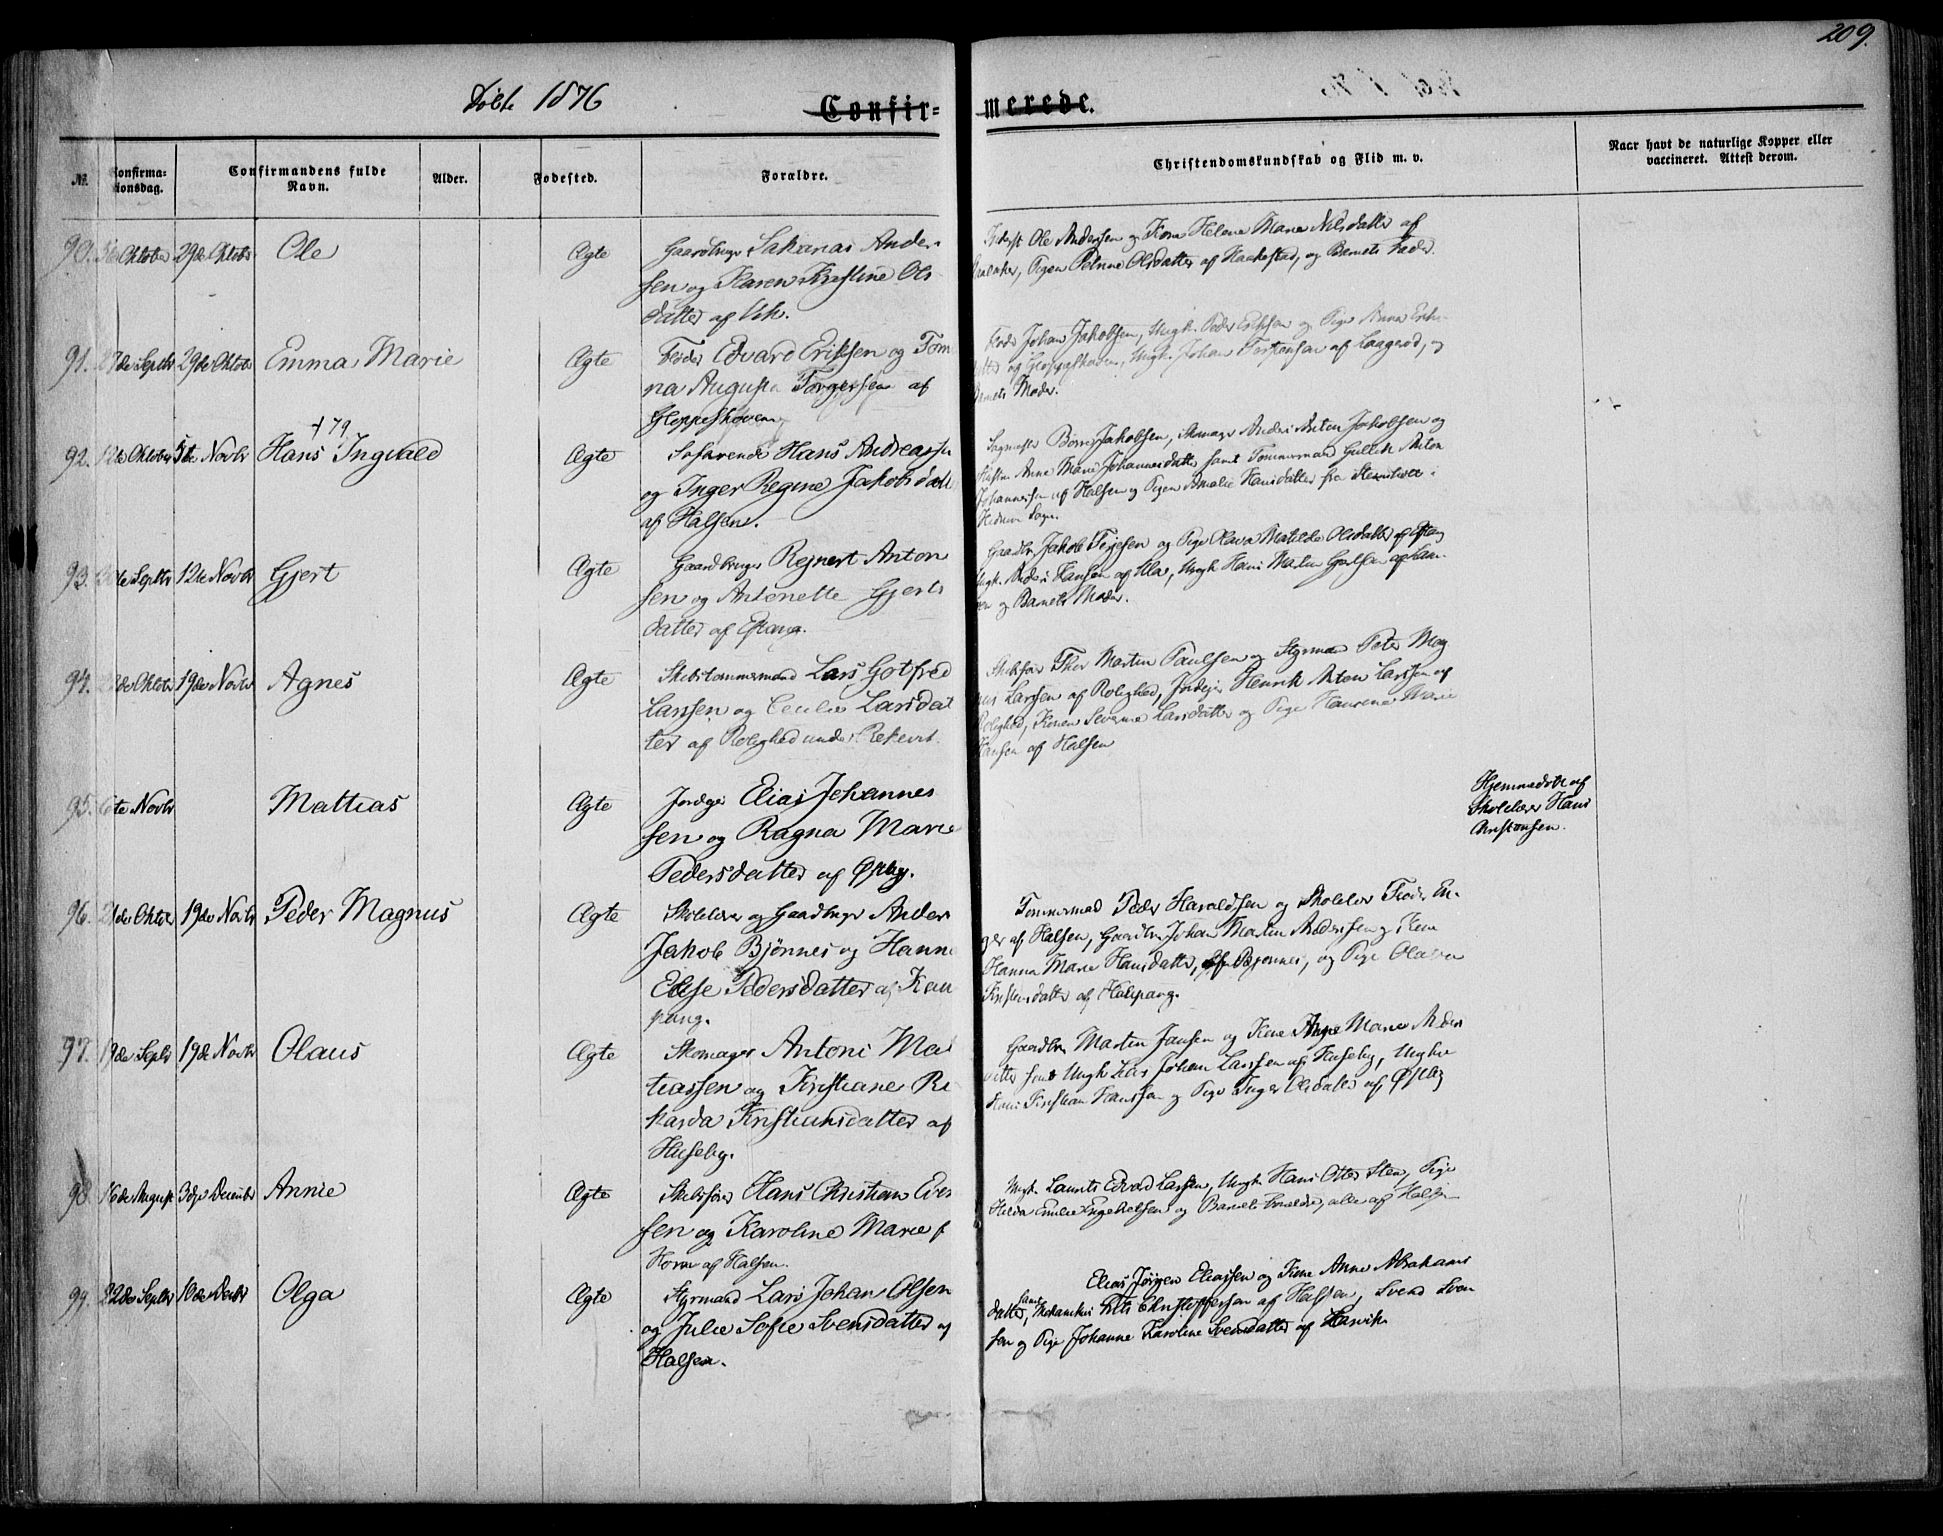 209.
Døbte 1876
Confir=
merede.
No.
Confirma=
tionsdag.
Confirmandens fulde
Navn.
Alder.
Fødested.
Forældre.
Christendomskundskab og Flid m. v.
Naar havt de naturlige Kopper eller
vaccineret. Attest derom.
90. Oktober 29de Oktober Ole Ægte Gaardbruger Sakarias Ander
sen og Karen Kristine Ols
datter af Vik.
Ole Andersen og Kone Helene Marie Nilsdatter af
Pigen Petrine Olsdatter af Haakestad, og Barnets Fader.
91. 17de Septbr 29de Oktobr Emma Marie Ægte Edvard Eriksen og Tom
na Augusta Torgersen af
Gloppeshoven
Johan Jakobsen, Ungk. Peder Eriksen og Pige Anna Erik
og Gloppeshoven, Ungk. Johan Torstensen af Laagerød, og
Barnets Moder.
† 79
92. 12te Oktober 5te Novbr Hans Ingvald Ægte Søfarende Hans Andreassen
og Inger Regine Jakobsdatte
af Halsen.
Børre Jakobsen, Skomager Anders Anton Jakobsen og
Anne Marie Johannesdatter samt Tømmermand Gullik Anton
Johannessen af Halsen og Pigen Amalie Hansdatter fra
Hedrum Sogn.
93. Septbr 12te Novbr Gjert Ægte Gaardbruger Rejnert Anton
sen og Antonette Gjerts
datter af Østang.
Gaardbr. Jakob Terjesen og Pige Olava Matilde Olsdatter af
Ungk. Anders Hansen af Ula, Ungk Hans Martin
og Barnets Moder.
94. Oktobr 19de Novbr Agnes Ægte Skibstømmermand Lars Gotfred
Larssen og Cecilie Larsdat
ter af Rolighed under Rekevik.
Skibsfører Thor Martin Paulsen og Styrmand Peter Mag
nus Larssen af Rolighed, Jordejer Henrik Anton Larssen af
Rolighed, Konen Severine Larsdatter og Pige Haurene Marie
Hansen af Halsen
95. 6te Novbr Mattias Ægte Jordejer Elias Johannes
sen og Ragna Marie
Pedersdatter af Østby.
Hjemmedøbt af
Skolelærer Hans
Christensen.
96. 21de Oktbr 19de Novbr Peder Magnus Ægte Skolelærer og Gaardbruger Anders
Jakob Bjønnes og Hanne
Elise Pedersdatter af Kau
pang.
Tømmermand Peder Haraldsen og Skolelærer Teodor En=
ger af Halsen, Gaardbr Johan Martin Andersen og Kone
Hanna Marie Hansdatter, af Bjønnes, og Pige Olava
Kristensdatter af Kaupang.
97. 19de Septbr 19de Novbr Olaus Ægte Skomager Antoni Mat
tiassen og Kristiane Ri
karda Kristiansdatter af
Huseby.
Gaardbr Martin Jansen og Kone Anne Marie Anders
datter samt Ungk Lars Johan Larssen af Huseby, Ungkar
Hans Kristian Hanssen og Pige Inger Olsdatter af Østby
98. 16de August 3dje Decembr Annie Ægte Skibsfører Hans Christian Evens
sen og Karoline Marie f
Horn af Halsen.
Ungk. Laurits Edvard Larssen, Ungk. Hans Otter Sten, Pige
Hilda Emilie Engebretsen og Barnets Forældre, alle af Halsen
99. 22de Septbr 10de Decbr Olga Ægte Styrmand Lars Johan Olsen
og Julie Sofie Svensdatter af
Halsen.
Elias Jørgen Eliassen og Kone Anne Abrahams
datter, samt Mekanikus Fritz Christoffersen af Halsen, Svend Sven
sen og Pige Johanne Karoline Svensdatter af Larvik